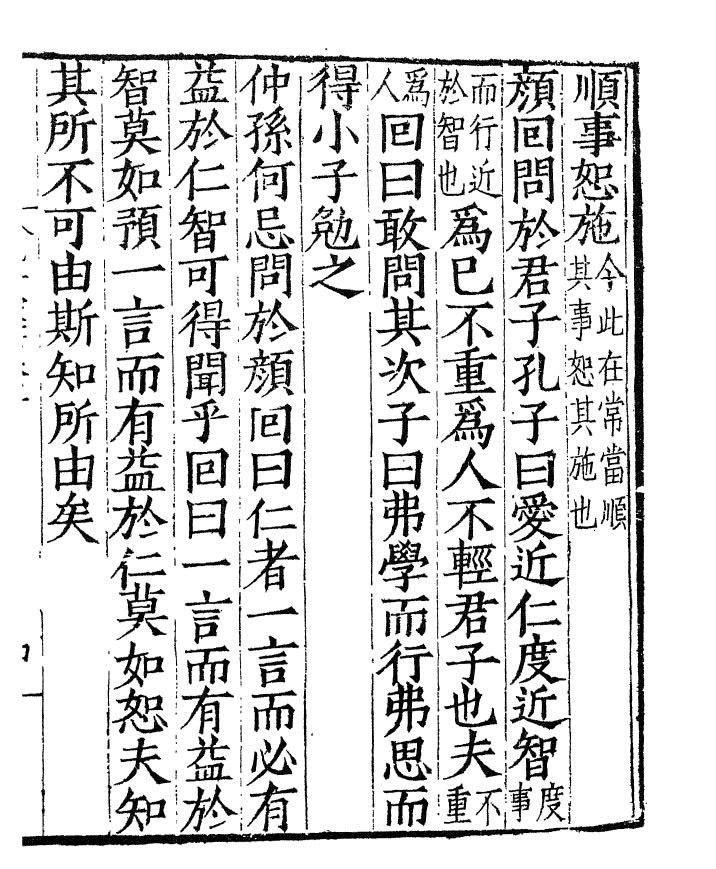 順事恕施今此在常當順其事恕其施也
顔回問於君子孔子曰愛近仁度近智度事
而行近於智也爲已不重爲人不輕君子也夫不重
爲人回曰敢問其次子曰弗學而行弗思而
得小子勉之
仲孫何忌問於顔回曰仁者一言而必有
益於仁智可得聞乎回曰一言而有益於
智莫如預一言而有益於仁莫如恕夫知
其所不可由斯知所由矣